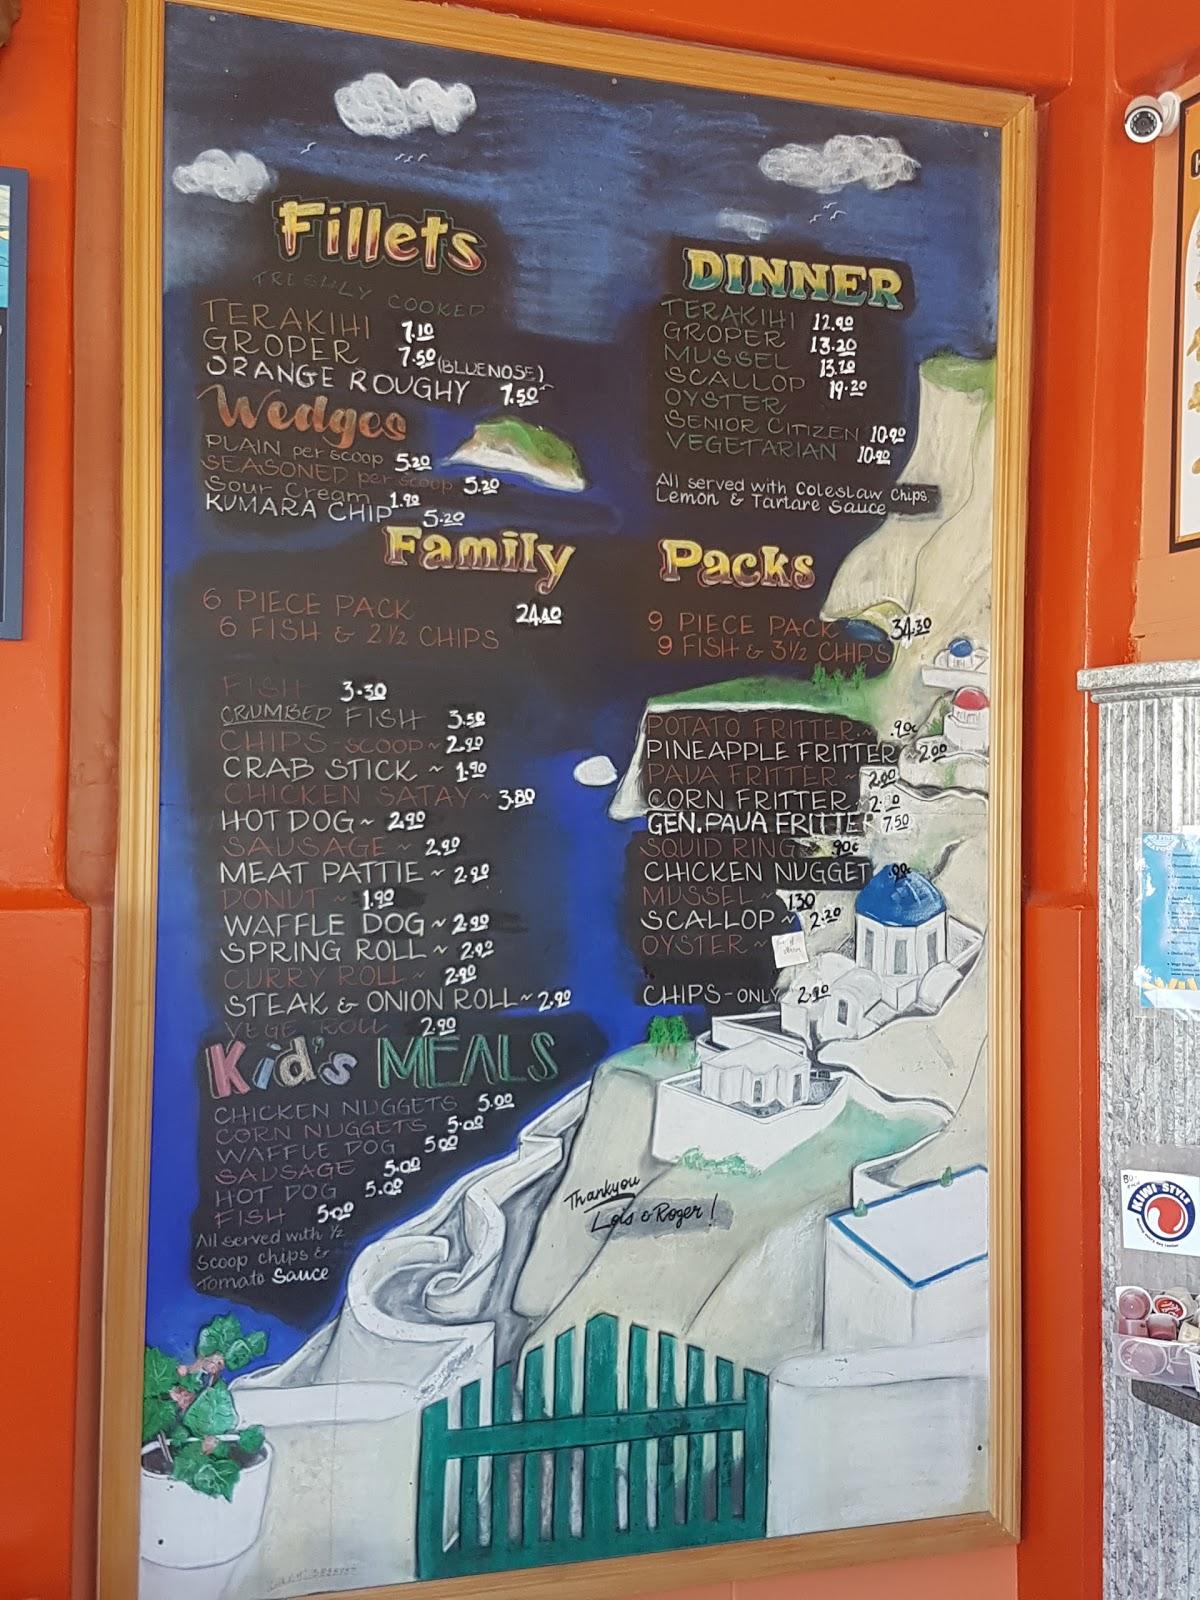 Fillets
FRESHLY COOKED
TERAKIHI 7.10
GROPER 7.50 (BLUENOSE)
ORANGE ROUGHY 7.50
Wedges
PLAIN per scoop 5.20
SEASONED per scoop 5.20
Sour Cream 1.90
KUMARA CHIP 5.20
DINNER
TERAKIHI 12.90
GROPER 13.20
MUSSEL 13.20
SCALLOP 19.20
OYSTER
SENIOR CITIZEN 10.90
VEGETARIAN 10.90
All served with Coleslaw Chips,
Lemon & Tartare Sauce
Family Packs
6 PIECE PACK 24.40
6 FISH & 2 1/2 CHIPS
9 PIECE PACK 34.30
9 FISH & 3 1/2 CHIPS
FISH 3.30
CRUMBED FISH 3.50
CHIPS - SCOOP ~ 2.90
CRAB STICK ~ 1.90
CHICKEN SATAY ~ 3.80
HOT DOG ~ 2.90
SAUSAGE ~ 2.90
MEAT PATTIE ~ 2.90
DONUT ~ 1.90
WAFFLE DOG ~ 2.90
SPRING ROLL ~ 2.90
CURRY ROLL ~ 2.90
STEAK & ONION ROLL ~ 2.90
VEGE ROLL 2.90
POTATO FRITTER ~ .90c
PINEAPPLE FRITTER ~ 2.00
PAUA FRITTER ~ 2.00
CORN FRITTER
GEN. PAUA FRITTER 7.50
SQUID RING .90c
CHICKEN NUGGET .90c
MUSSEL ~ 1.30
SCALLOP ~ 2.20
OYSTER ~
CHIPS - ONLY 2.90
Kid's MEALS
CHICKEN NUGGETS 5.00
CORN NUGGETS 5.00
WAFFLE DOG 5.00
SAUSAGE 5.00
HOT DOG 5.00
FISH 5.00
All served with 1/2
Scoop chips &
Tomato Sauce
Thankyou
Lois & Roger!
KIWI STYLE